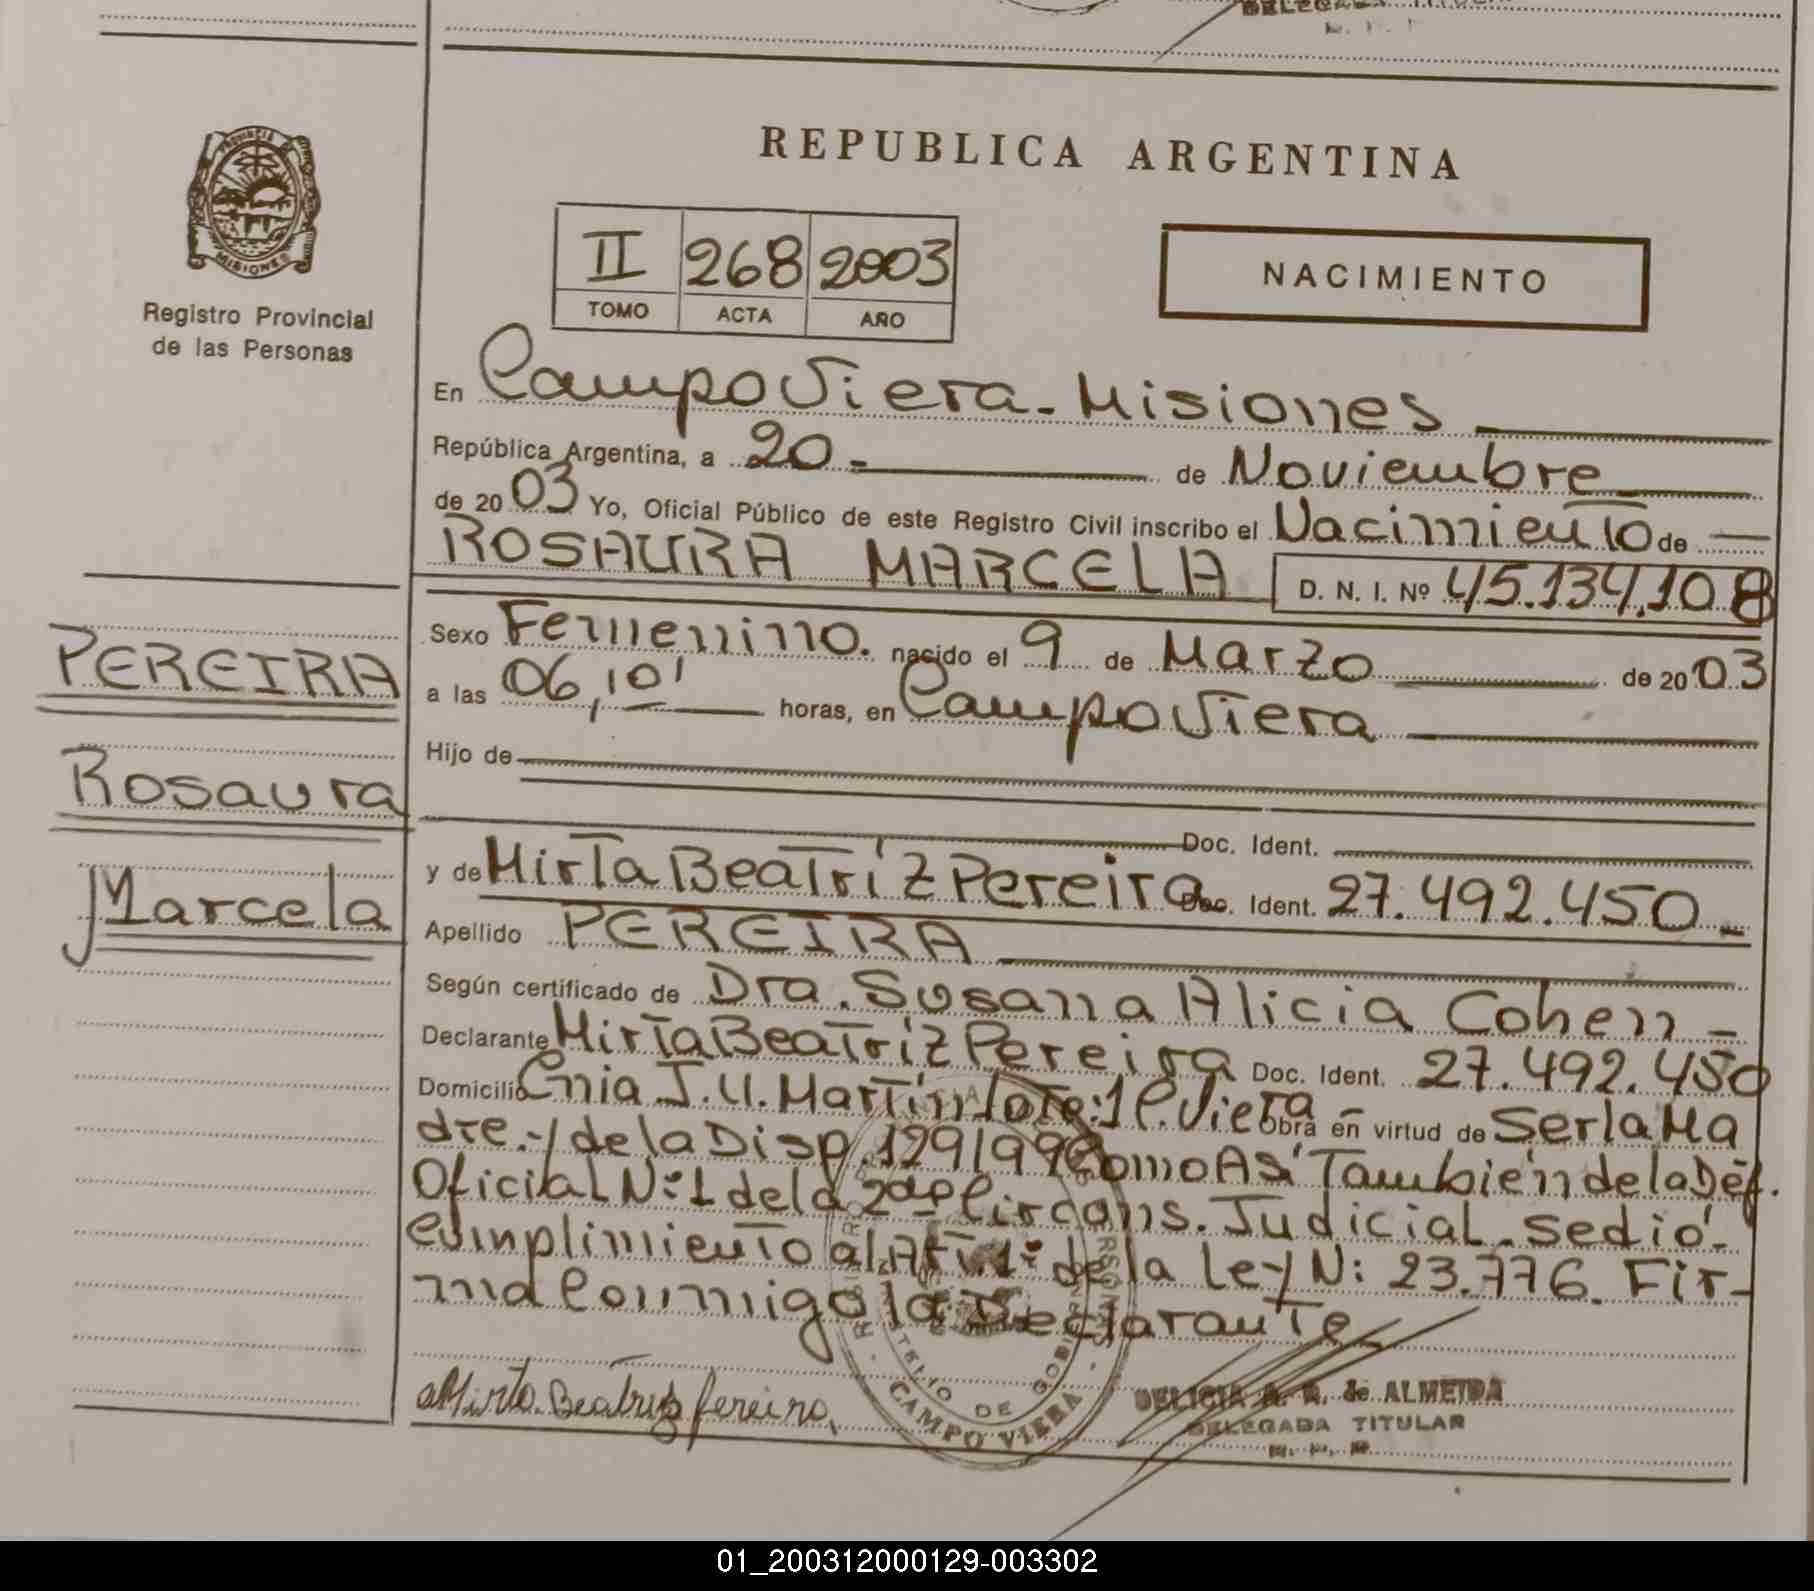 PROVINCIA DE
MISIONES
Registro Provincial
de las Personas
PEREIRA
Rosaura
Marcela
REPUBLICA ARGENTINA
II 268 2003
TOMO ACTA AÑO
NACIMIENTO
En Campo Viera - Misiones
República Argentina, a 20 - de Noviembre
de 2003 Yo, Oficial Público de este Registro Civil inscribo el Nacimiento de
ROSAURA MARCELA D. N. I. Nº 45.134.108
Sexo Femenino. nacido el 9 de Marzo de 2003
a las 06,10' horas, en Campo Viera
Hijo de
Doc. Ident.
y de Mirta Beatríz Pereira Doc. Ident. 27.492.450 -
Apellido PEREIRA
Según certificado de Dra. Susana Alicia Cohen -
Declarante Mirta Beatríz Pereira Doc. Ident. 27.492.450
Domicilio Cnia J.U. Martín lote:1 C. Viera Obra en virtud de Ser la Ma
dre.- y de la Disp. 129/99 Como Así También de la Def.
Oficial Nº:1 de la 2da Circuns. Judicial. se dió -
Cumplimiento al Art. 1º de la Ley N: 23.776. Fir-
ma Conmigo la Declarante
Mirta Beatriz Pereira
CAMPO VIERA
DELICIA A. R. de ALMEIDA
DELEGADA TITULAR
01_200312000129-003302